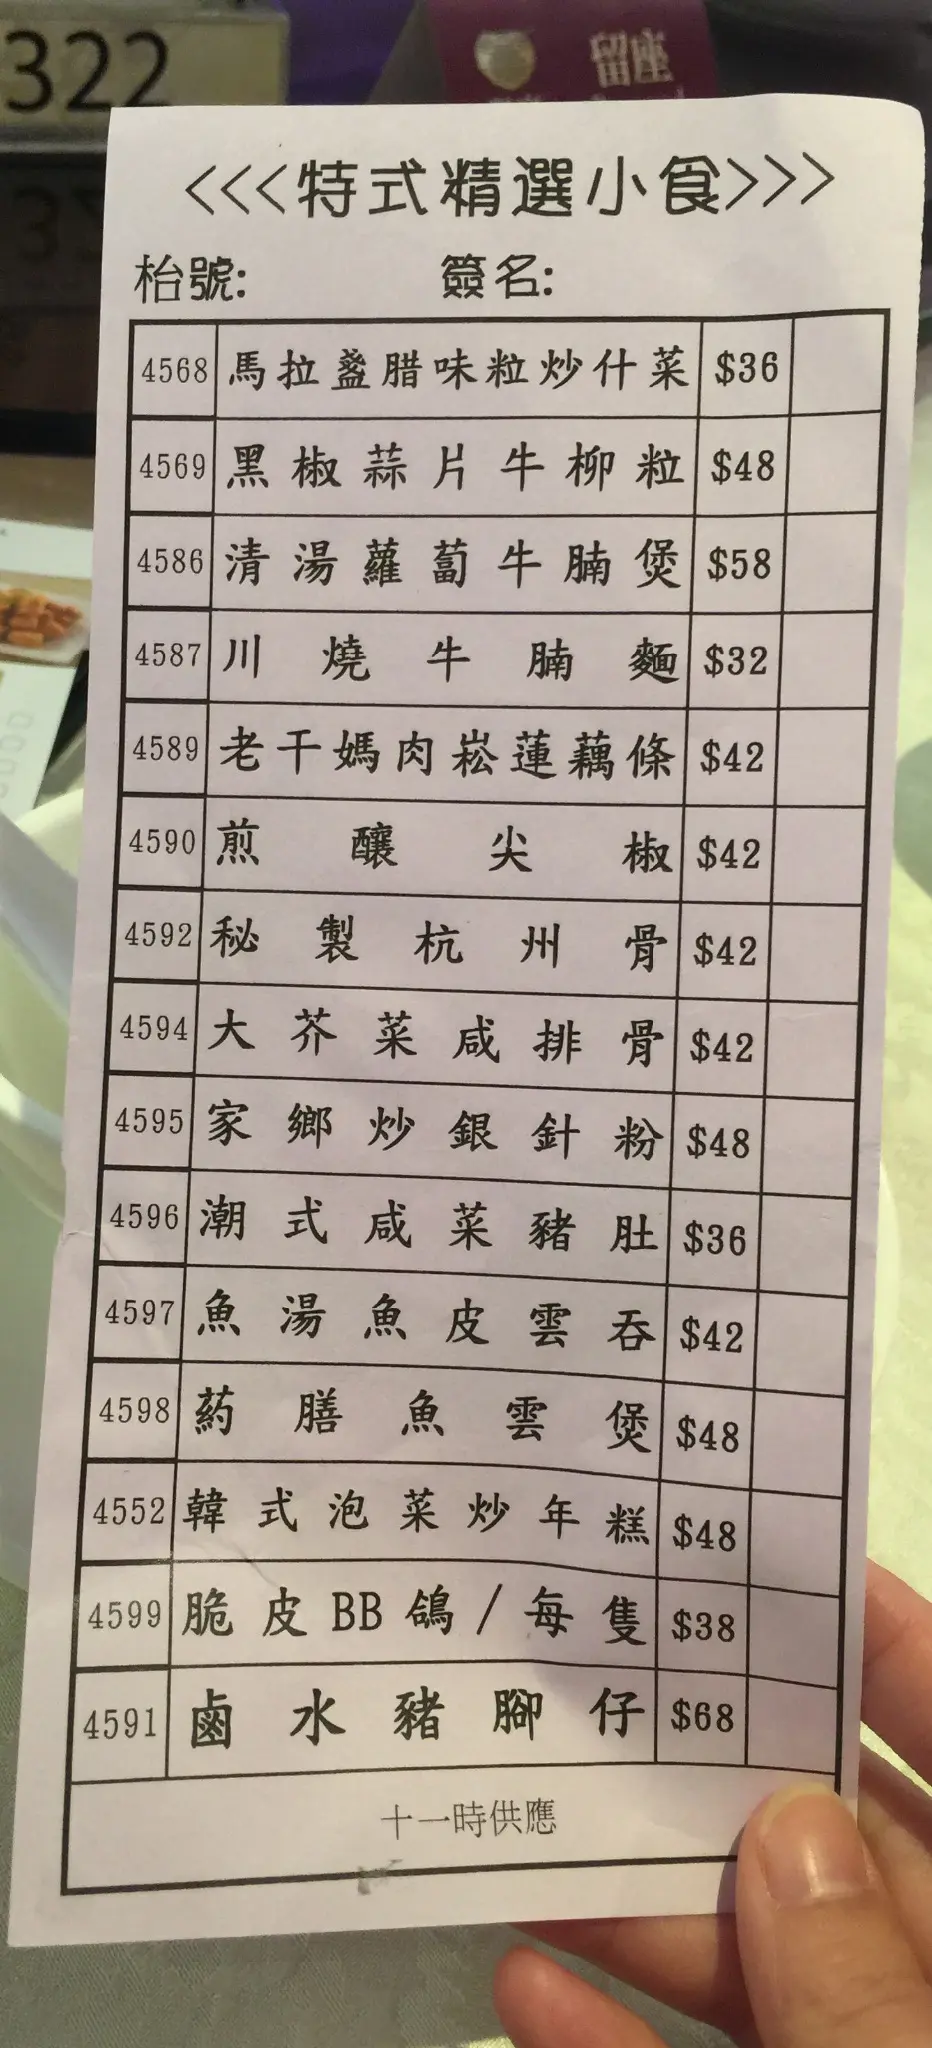 322
留座
<<<特式精選小食>>>
枱號: 簽名:
4568 馬拉盞腊味粒炒什菜 $36
4569 黑椒蒜片牛柳粒 $48
4586 清湯蘿蔔牛腩煲 $58
4587 川燒牛腩麵 $32
4589 老干媽肉崧蓮藕條 $42
4590 煎釀尖椒 $42
4592 秘製杭州骨 $42
4594 大芥菜咸排骨 $42
4595 家鄉炒銀針粉 $48
4596 潮式咸菜豬肚 $36
4597 魚湯魚皮雲吞 $42
4598 葯膳魚雲煲 $48
4552 韓式泡菜炒年糕 $48
4599 脆皮BB鴿/每隻 $38
4591 鹵水豬腳仔 $68
十一時供應